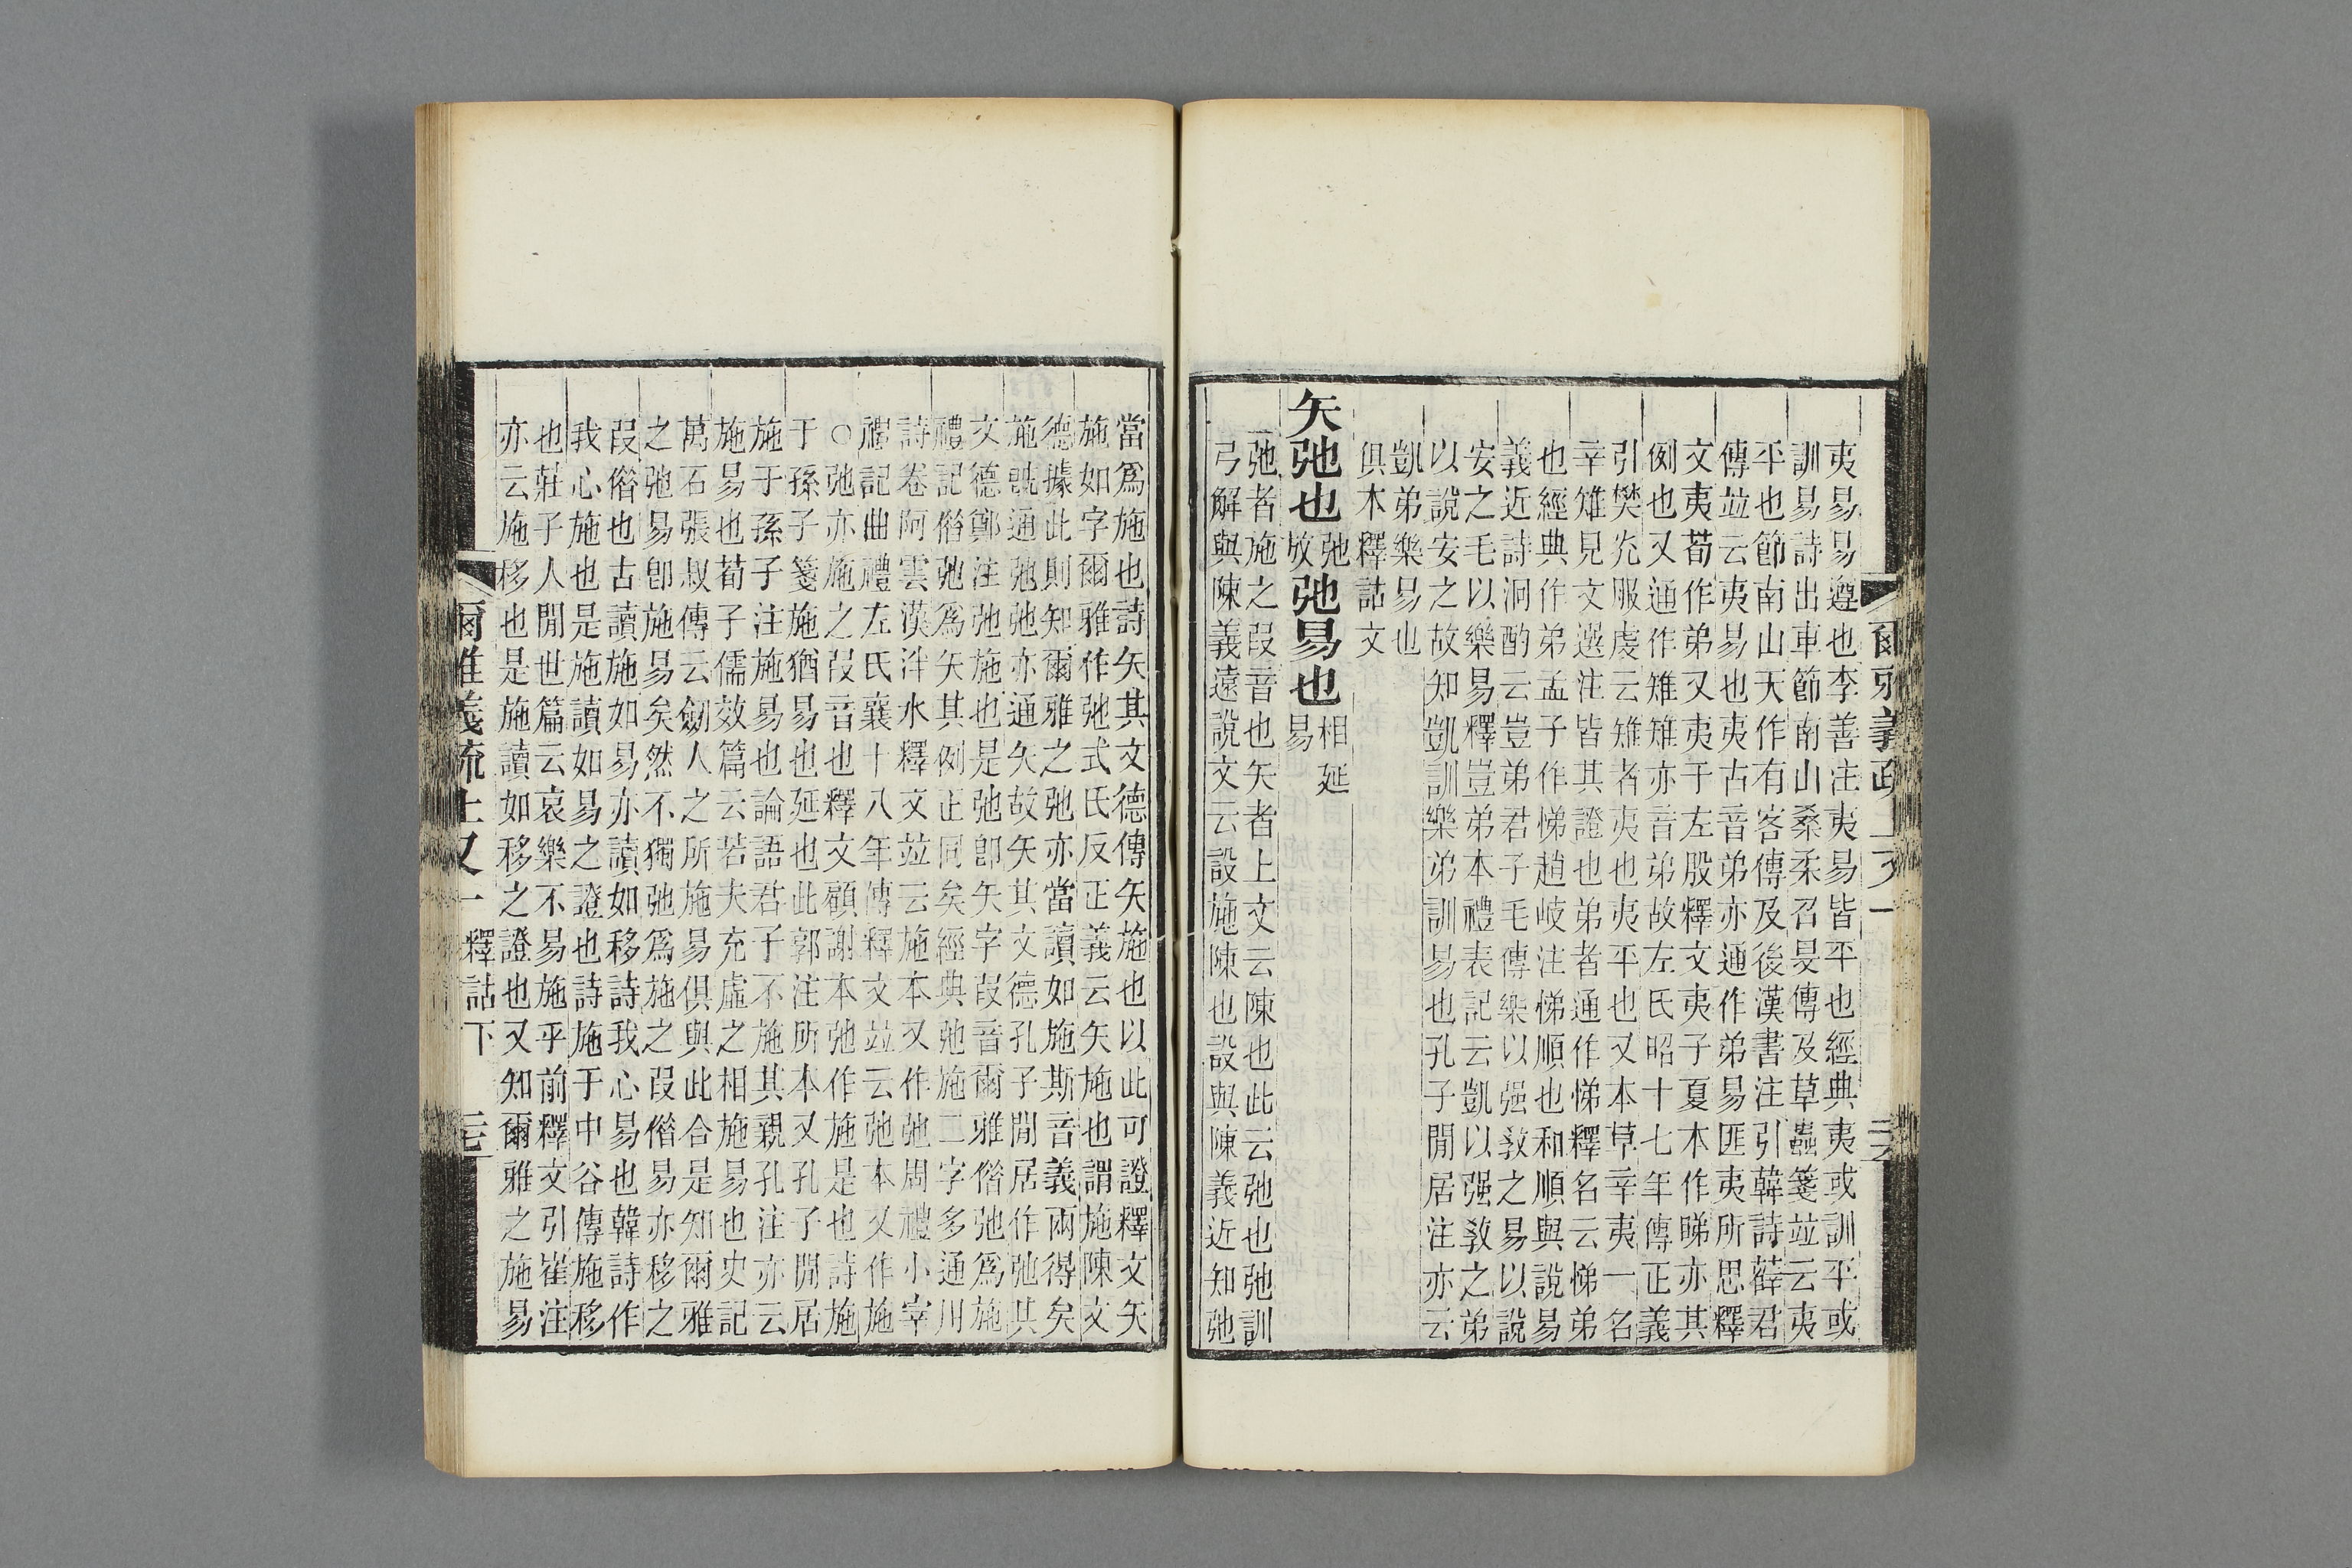 夷易易遵也李善注夷易皆平也經典夷或訓平或
訓易詩出車節南山桑柔召旻傳及草蟲箋竝云夷
平也節南山天作有客傳及後漢書注引韓詩薛君
傳竝云夷易也夷古音弟亦通作弟易匪夷所思釋
文夷荀作弟又夷于左股釋文夷子夏本作睇亦其
例也又通作雉雉亦音弟故左氏昭十七年傳正義
引樊光服虔云雉者夷也夷平也又本草辛夷一名
辛雉見文選注皆其證也弟者通作悌釋名云悌弟
也經典作弟孟子作悌趙岐注悌順也和順與說易
義近詩泂酌云豈弟君子毛傳樂以强敎之易以說
安之毛以樂易釋豈弟本禮表記云凱以强敎之弟
以說安之故知凱訓樂弟訓易也孔子閒居注亦云
凱弟樂易也
俱本釋詁文
矢弛也弛放弛易也相延易
弛者施之叚音也矢者上文云陳也此云弛也弛訓
弓解與陳義遠說文云設施陳也設與陳義近知弛
爾雅義疏上又一
當爲施也詩矢其文德傳矢施也以此可證釋文矢
施如字爾雅作弛式氏反正義云矢施也謂施陳文
德據此則知爾雅之弛亦當讀如施斯音義兩得矣
施旣通弛弛亦通矢故矢其文德孔子閒居作弛其
文德鄭注弛施也是弛卽矢字叚音爾雅偺弛爲施
禮記偺弛爲矢其例正同矣經典弛施二字多通用
詩卷阿雲漢泮水釋文竝云施本又作弛周禮小宰
禮記曲禮左氏襄十八年傳釋文竝云弛本又作施
○弛亦施之叚音也釋文顧謝本弛作施是也詩施
于孫子箋施猶易也延也此郭注所本又孔子閒居
施于孫子注施易也論語君子不施其親孔注亦云
施易也荀子儒效篇云若夫充虛之相施易也史記
萬石張叔傳云劒人之所施易俱與此合是知爾雅
之弛易卽施易矣然不獨弛爲施之叚偺易亦移之
叚偺也古讀施如易亦讀如移詩我心易也韓詩作
我心施也是施讀如易之證也詩施于中谷傳施移
也莊子人閒世篇云哀樂不易施乎前釋文引崔注
亦云施移也是施讀如移之證也又知爾雅之施易
爾雅義疏上又一 釋詁下